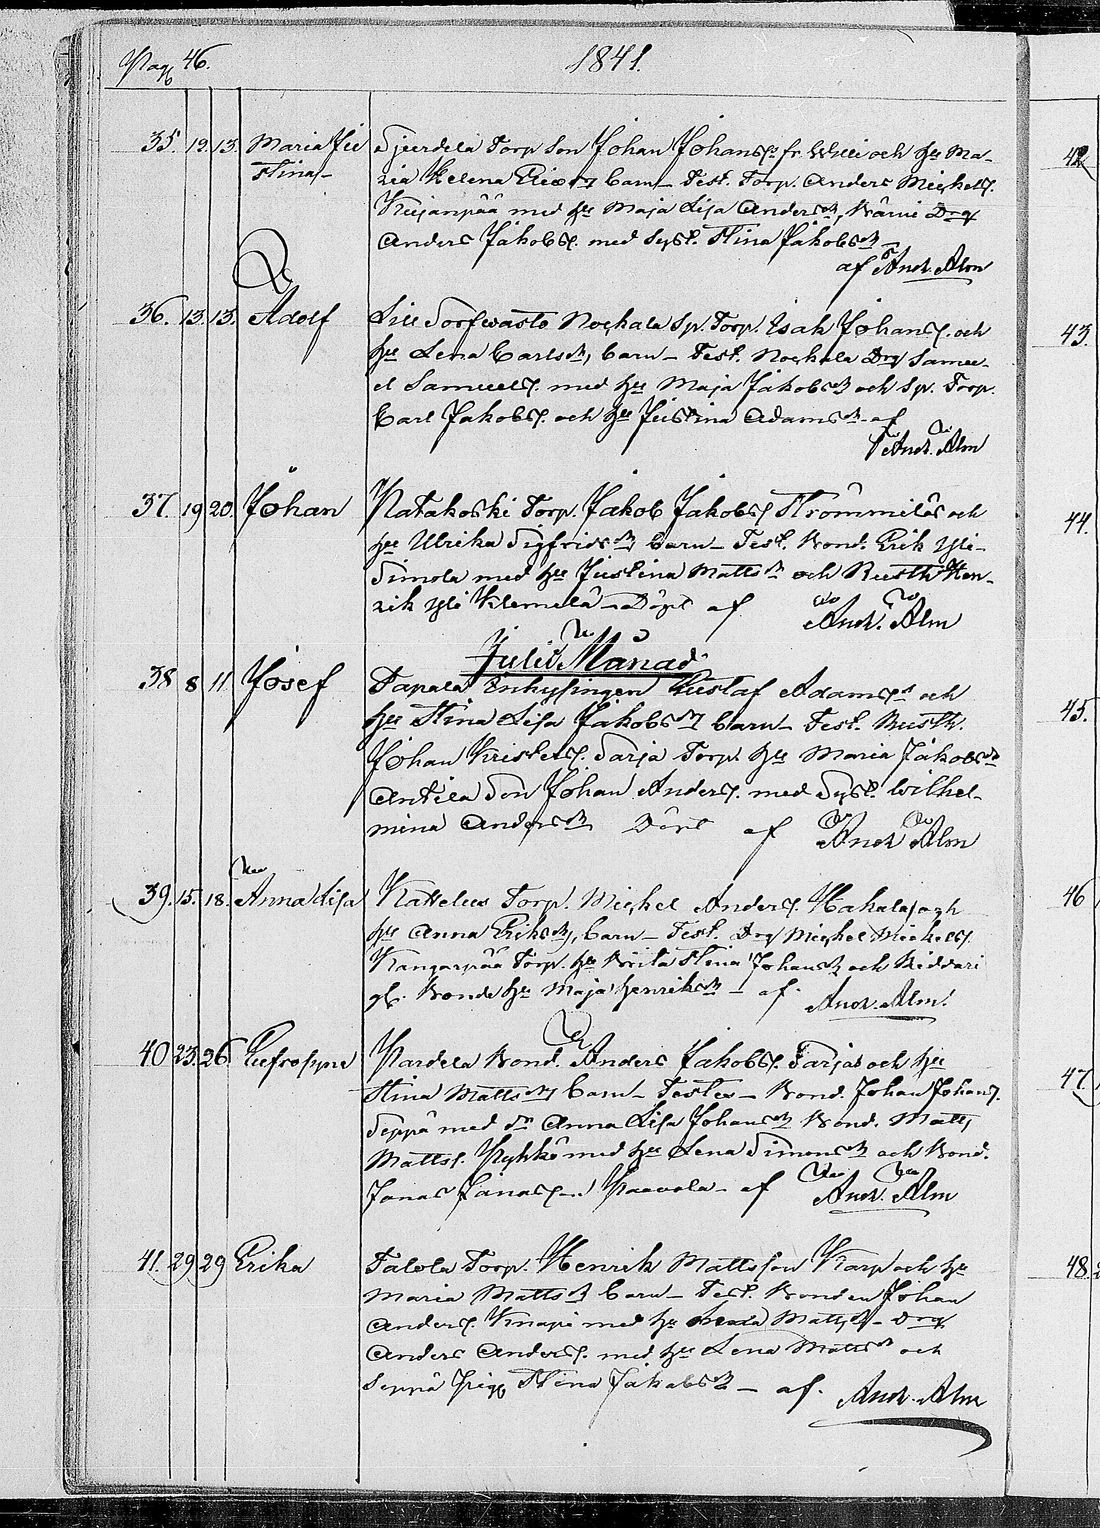 Pag 46. 1841.
35. 13. 13. Maria Stina Torp Son Johan Johanss. fr. och hu Ma-
ria Helena barn – Test. Torp. Anders Michelss.
med hu Maja Lisa Andersdr, Drg
Anders Jakobss. med Syst. Stina Jakobsdr
af And. Alm
36. 13. 13. Adolf Nochala Sp. Torp. Isak Johanss. och
hu Lena Carlsdr, barn – Test. Nochala Drg Samu-
el Samuelss. med hu Maja Jakobsdr och Sp. Torp.
Carl Jakobss. och hu Justina Adamsdr – af
And. Alm
37. 19 20. Johan Ratakoski Torp. Jakob Jakobss och
hu Ulrika Sigfridsdr barn – Test. Bond. Erik Yli-
Simola med hu Justina Mattsdr och Rusth. Hen-
rik Yli Klemelä – Döpt af And. Alm
Julii Månad
38 8 11 Josef Tapala Inhysingen Gustaf Adamss och
hu Stina Lisa Jakobsdr barn – Test. Rusth.
Johan Kristerss. Sarja Torp. hu Maria Jakobsdr
Antila Son Johan Anderss. med Syst. Wilhel-
mina Andersdr Döpt af And. Alm
39. 15. 18. Anna Lisa Kattelus Torp. Michel Anderss. Hakala och
hu Anna Eriksdr, barn – Test. Drg Michel Michelss.
Kangarpää Torp. hu Brita Stina Johansdr och Riddari
gl. Bonde hu Maja Henriksdr – af. And. Alm.
40 23. 26 Eufrosyne Pardela Bond. Anders Jakobss. Sarja och hu
Stina Mattsdr barn – Testes – Bond. Johan Johanss.
Seppä med dr Anna Lisa Johansdr Bond. Matts
Mattss. med hu Lena Simonsdr och Bond.
Jonas Jonass. Paavola – af And. Alm
41. 29 29 Erika Talola Torp. Henrik Mattsson Karp och hu
Maria Mattsdr barn – Test. Bonden Johan
Anderss. Knapi med hu – Drg
Anders Anderss. med hu Lena Mattsdr och
Seppä Pig Stina Jakobsdr – af. And. Alm
42
43.
44.
45.
46
47
48.